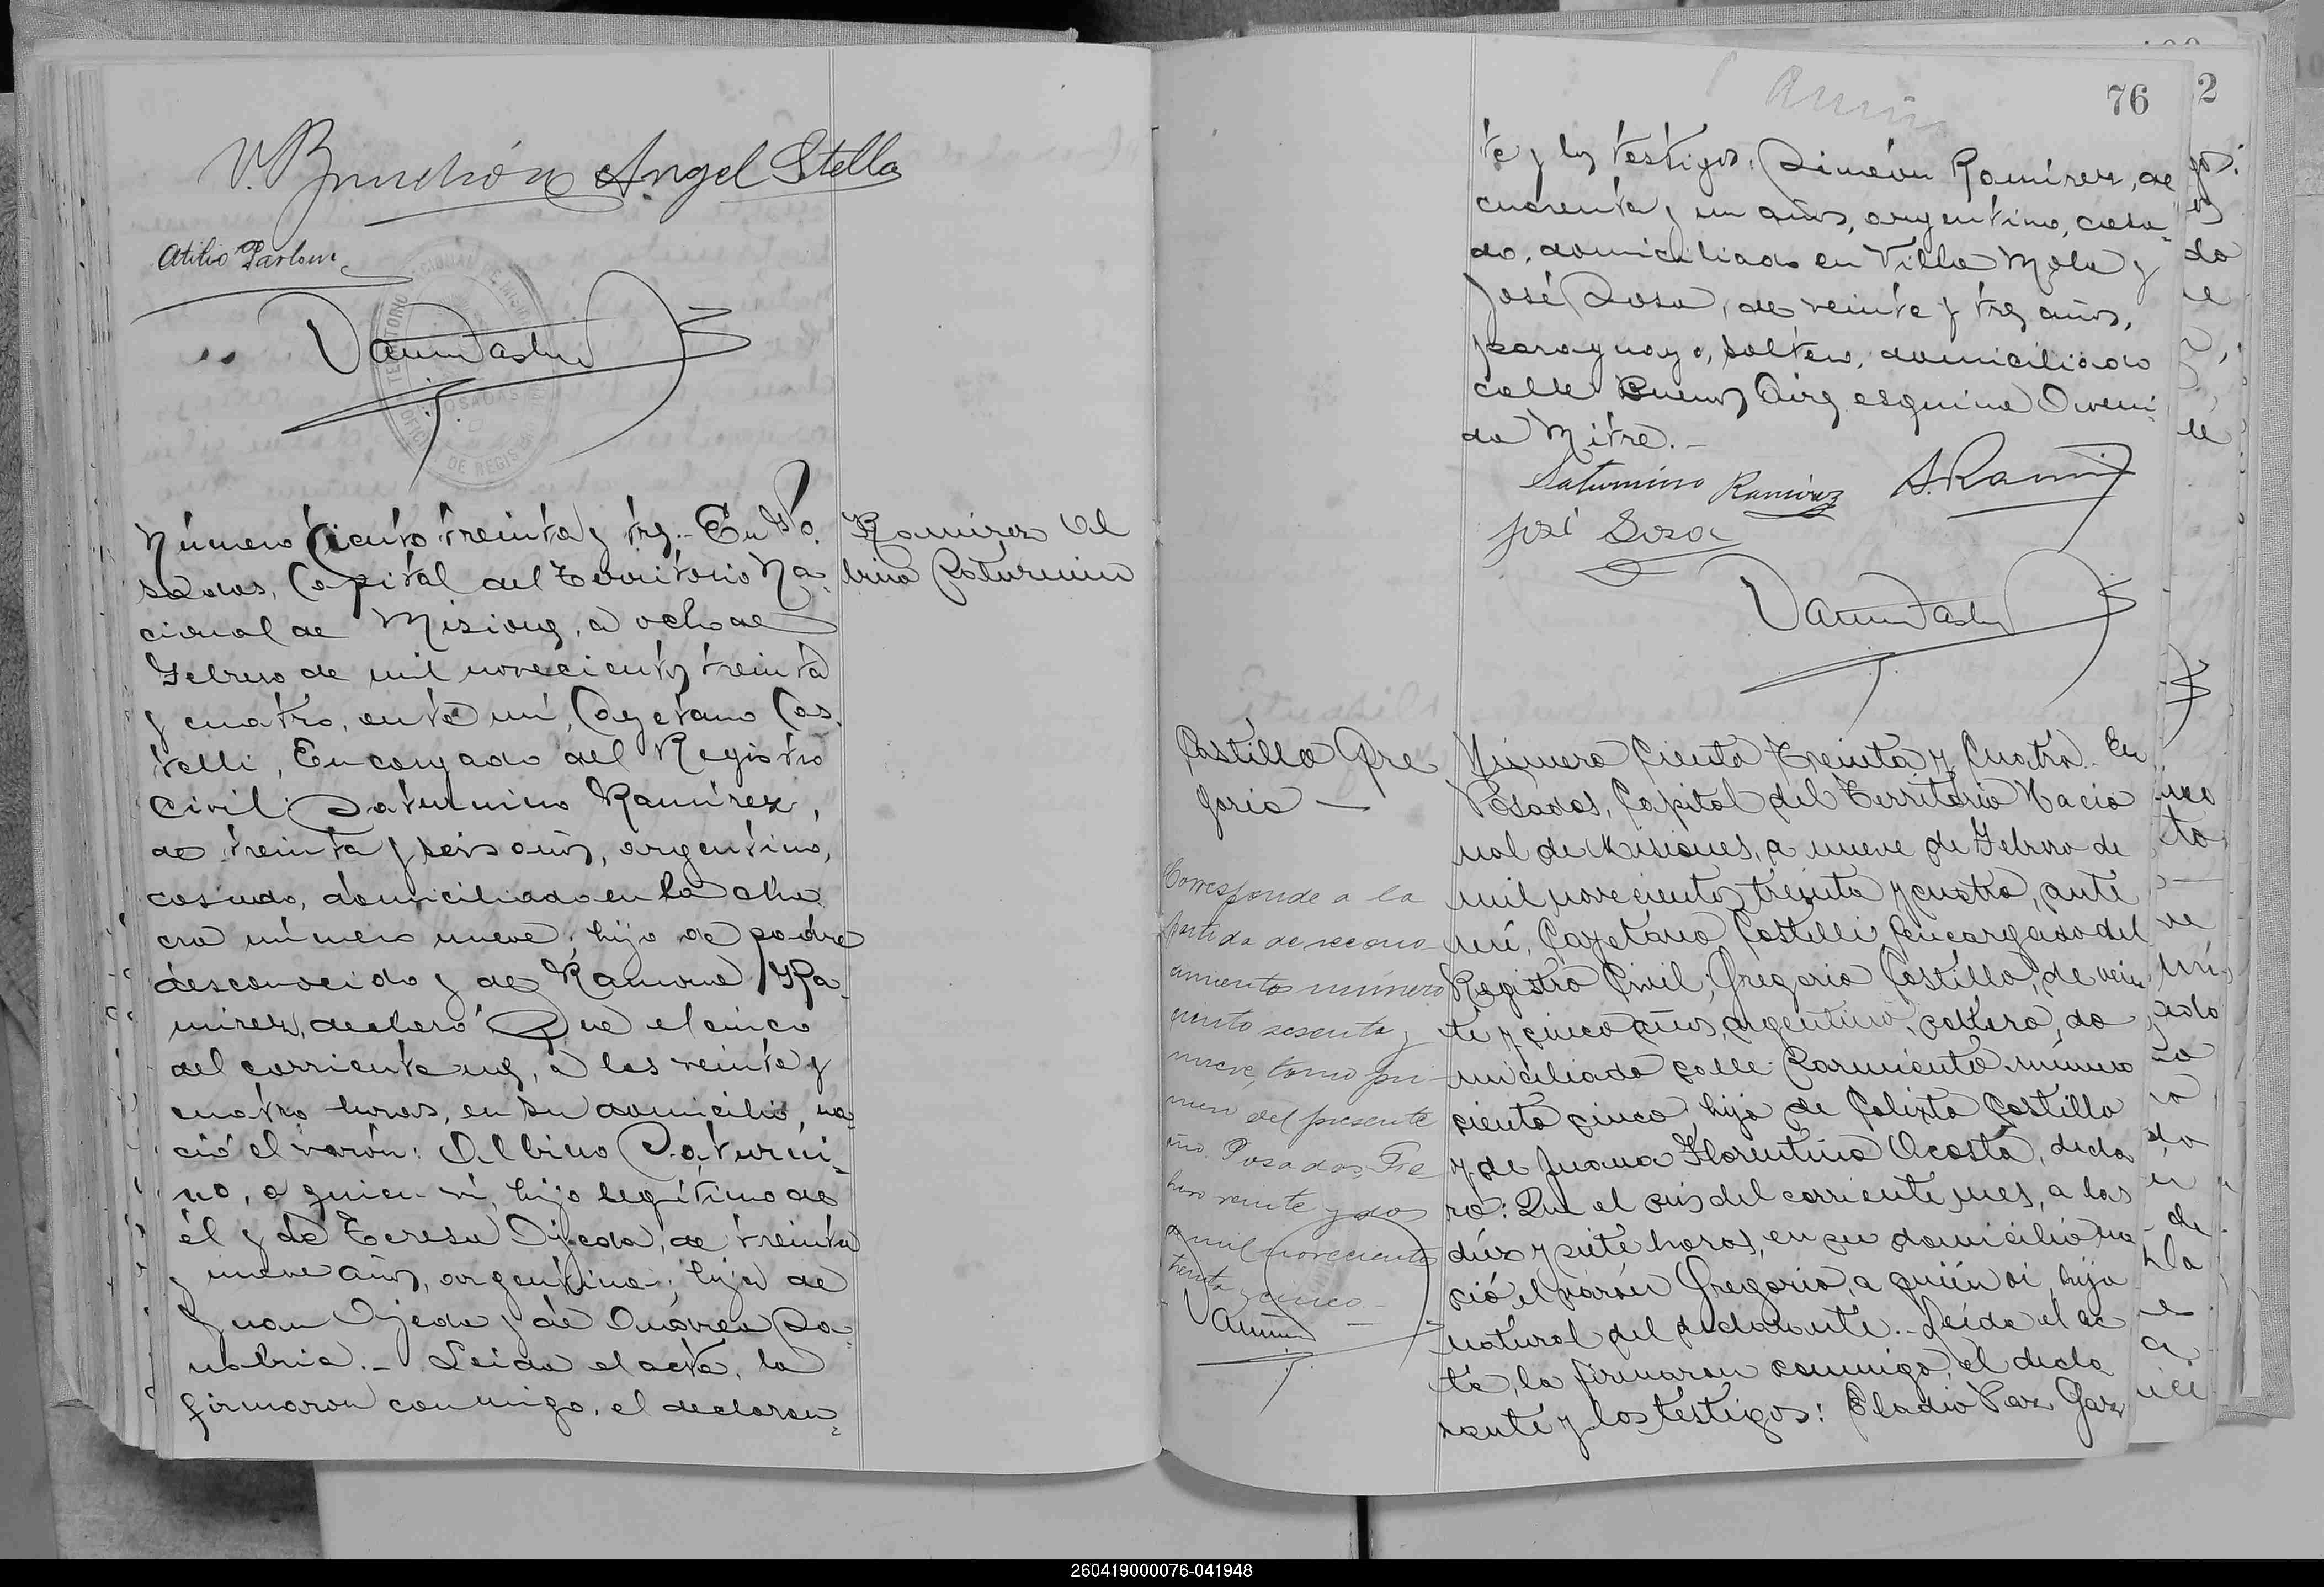 Angel Stella
Atilio
Número Ciento treinta y tres.- En Po-
sadas, Capital del Territorio Na-
cional de Misiones, a ocho de
Febrero de mil novecientos treinta
y cuatro, ante mí, Cayetano Cas-
telli, Encargado del Registro
Civil, Saturnino Ramírez,
de treinta y seis años, argentino,
casado, domiciliado en la cha-
cra número nueve, hijo de padre
desconocido y de Ramona Ra-
mírez, declaró: Que el cinco
del corriente mes, a las veinte y
cuatro horas, en su domicilio, na-
ció el varón: Albino Saturni-
no, a quien ví, hijo legítimo de
él y de Teresa Ojeda, de treinta
y nueve años, argentina, hija de
Juan Ojeda y de
Leida el acta, la
firmaron conmigo, el declaran-
Ramírez Al
bino Saturnino
76
2
te y los testigos: Simeón Ramírez, de
cuarenta y un años, argentino, casa-
do, domiciliado en Villa Mola y
José Sosa, de veinte y tres años,
paraguayo, soltero, domiciliado
calle Buenos Aires esquina Aveni-
da Mitre.-
Saturnino Ramírez S. Ramírez
José Sosa
Castillo Gre
gorio —
Corresponde a la
partida de recono-
cimiento número
ciento sesenta y
nueve, tomo pri-
mero del presente
año. Posadas, Fe
brero veinte y dos
de mil novecientos
treinta y cinco.-
Número Ciento Treinta y Cuatro.- En
Posadas, Capital del Territorio Nacio
nal de Misiones, a nueve de Febrero de
mil novecientos treinta y cuatro, ante
mí, Cayetano Castelli, Encargado del
Registro Civil, Gregorio Castillo, de vein
te y cinco años, argentino, soltero, do
miciliado calle Sarmiento número
ciento cinco, hijo de Calixto Castillo
y de Juana Florentina Acosta, decla
ró: Que el seis del corriente mes, a las
diez y siete horas, en su domicilio na
ció el varón Gregorio, a quién ví, hijo
natural del declarante.- Leída el ac
ta, la firmaron conmigo, el decla
rante y los testigos: Eladio Paz
260419000076-041948